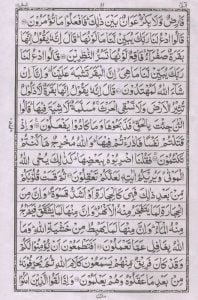 فَارِضٌ وَّلَا بِكْرٌ عَوَانٌ بَيْنَ ذٰلِكَ فَافْعَلُوْا مَا تُؤْمَرُوْنَ
قَالُوا ادْعُ لَنَا رَبَّكَ يُبَيِّنْ لَّنَا مَا لَوْنُهَا قَالَ اِنَّهٗ يَقُوْلُ اِنَّهَا
بَقَرَةٌ صَفْرَآءُ فَاقِعٌ لَّوْنُهَا تَسُرُّ النّٰظِرِيْنَ قَالُوا ادْعُ لَنَا
رَبَّكَ يُبَيِّنْ لَّنَا مَا هِيَ اِنَّ الْبَقَرَ تَشٰبَهَ عَلَيْنَا وَاِنَّآ اِنْ
شَآءَ اللّٰهُ لَمُهْتَدُوْنَ قَالَ اِنَّهٗ يَقُوْلُ اِنَّهَا بَقَرَةٌ لَّا ذَلُوْلٌ
تُثِيْرُ الْاَرْضَ وَلَا تَسْقِي الْحَرْثَ مُسَلَّمَةٌ لَّا شِيَةَ فِيْهَا قَالُوا
الْـٰٔنَ جِئْتَ بِالْحَقِّ فَذَبَحُوْهَا وَمَا كَادُوْا يَفْعَلُوْنَ وَاِذْ
قَتَلْتُمْ نَفْسًا فَادّٰرَءْتُمْ فِيْهَا وَاللّٰهُ مُخْرِجٌ مَّا كُنْتُمْ
تَكْتُمُوْنَ فَقُلْنَا اضْرِبُوْهُ بِبَعْضِهَا كَذٰلِكَ يُحْيِ اللّٰهُ
الْمَوْتٰى وَيُرِيْكُمْ اٰيٰتِهٖ لَعَلَّكُمْ تَعْقِلُوْنَ ثُمَّ قَسَتْ قُلُوْبُكُمْ
مِّنْ بَعْدِ ذٰلِكَ فَهِيَ كَالْحِجَارَةِ اَوْ اَشَدُّ قَسْوَةً وَاِنَّ مِنَ
الْحِجَارَةِ لَمَا يَتَفَجَّرُ مِنْهُ الْاَنْهٰرُ وَاِنَّ مِنْهَا لَمَا يَشَّقَّقُ فَيَخْرُجُ
مِنْهُ الْمَآءُ وَاِنَّ مِنْهَا لَمَا يَهْبِطُ مِنْ خَشْيَةِ اللّٰهِ وَمَا
اللّٰهُ بِغَافِلٍ عَمَّا تَعْمَلُوْنَ اَفَتَطْمَعُوْنَ اَنْ يُّؤْمِنُوْا لَكُمْ
وَقَدْ كَانَ فَرِيْقٌ مِّنْهُمْ يَسْمَعُوْنَ كَلٰمَ اللّٰهِ ثُمَّ يُحَرِّفُوْنَهٗ
مِنْ بَعْدِ مَا عَقَلُوْهُ وَهُمْ يَعْلَمُوْنَ وَاِذَا لَقُوا الَّذِيْنَ اٰمَنُوْا